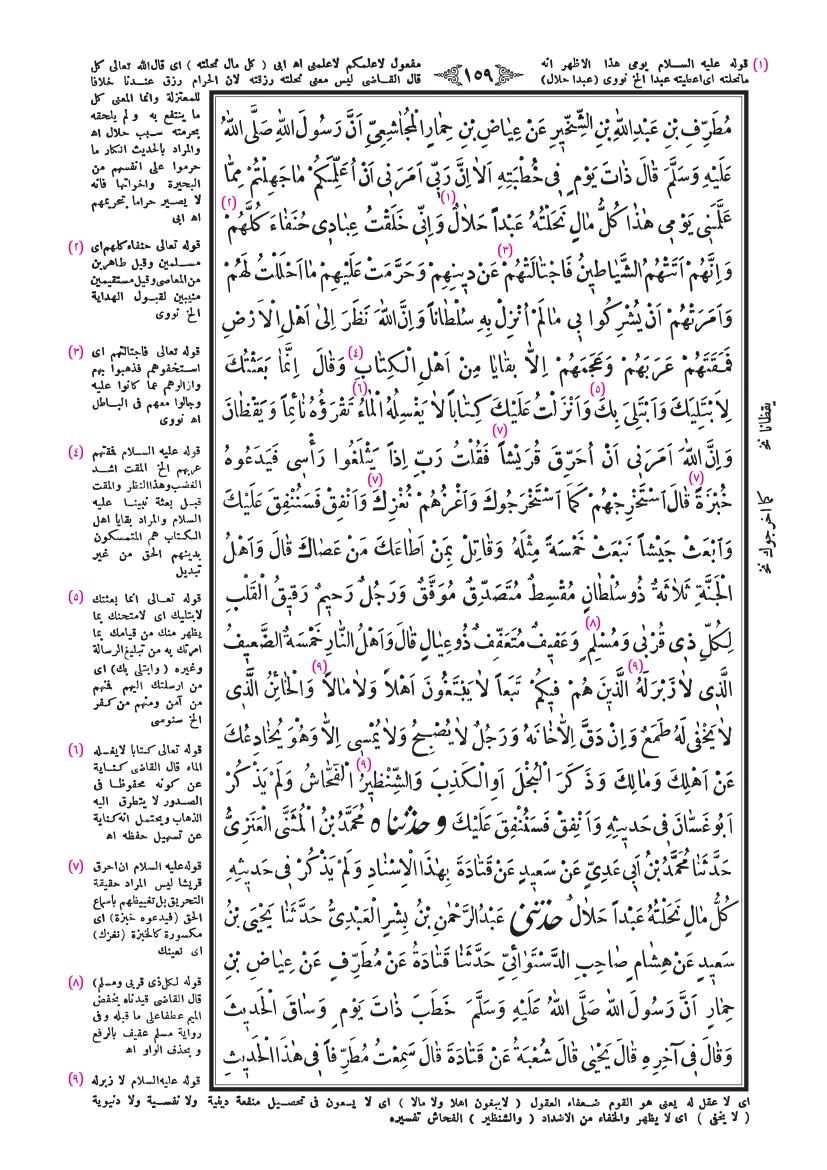 ١٥٩
(١) قوله عليه السلام يومى هذا الاظهر انه
مفعول لاعلمكم لاعلمنى اه ابى ( كل مال نحلته ) اى قال الله تعالى كل
مانحلته اى اعطيته عبدا الخ نووى (عبدا حلال)
قال القاضى ليس معنى نحلته رزقته لان الحرام رزق عندنا خلافا
للمعتزلة وانما المعنى كل
ما ينتفع به ولم يلحقه
بحرمته سبب حلال اه
والمراد بالحديث انكار ما
حرموا على انفسهم من
البحيرة واخواتها فانه
لا يصير حراما بتحريمهم
اه ابى
(٢) قوله تعالى حنفاء كلهم اى
مسلمين وقيل طاهرين
من المعاصى وقيل مستقيمين
منيبين لقبول الهداية
الخ نووى
(٣) قوله تعالى فاجتالتهم اى
استخفوهم فذهبوا بهم
وازالوهم عما كانوا عليه
وجالوا معهم فى الباطل
اه نووى
(٤) قوله عليه السلام فمقتهم
عربهم الخ المقت اشد
الغضب وهذا النظر والمقت
قبل بعثة نبينا عليه
السلام والمراد بقايا اهل
الكتاب هم المتمسكون
بدينهم الحق من غير
تبديل
(٥) قوله تعالى انما بعثتك
لابتليك اى لامتحنك بما
يظهر منك من قيامك بما
امرتك به من تبليغ الرسالة
وغيره ( وابتلى بك ) اى
من ارسلتك اليهم فمنهم
من آمن ومنهم من كفر
الخ سنوسى
(٦) قوله تعالى كتابا لايغسله
الماء قال القاضى كناية
عن كونه محفوظا فى
الصدور لا يتطرق اليه
الذهاب ويحتمل انه كناية
عن تسهيل حفظه اه
(٧) قوله عليه السلام ان احرق
قريشا ليس المراد حقيقة
التحريق بل تغييظهم باسماع
الحق (فيدعوه خبزة) اى
مكسورة كالخبزة (نغزك)
اى نعينك
(٨) قوله لكل ذى قربى ومسلم)
قال القاضى قيدناه بخفض
الميم عطفا على ما قبله وفى
رواية مسلم عفيف بالرفع
وبحذف الواو اه
(٩) قوله عليه السلام لا زبر له
مُطَرِّفِ بْنِ عَبْدِ اللّٰهِ بْنِ الشِّخِّيرِ عَنْ عِيَاضِ بْنِ حِمَارٍ الْمُجَاشِعِيِّ اَنَّ رَسُولَ اللّٰهِ صَلَّى اللّٰهُ
عَلَيْهِ وَسَلَّمَ قَالَ ذَاتَ يَوْمٍ فِى خُطْبَتِهِ اَلَا اِنَّ رَبِّى اَمَرَنِى اَنْ اُعَلِّمَكُمْ مَا جَهِلْتُمْ مِمَّا
عَلَّمَنِى يَوْمِى هٰذَا (١) كُلُّ مَالٍ نَحَلْتُهُ عَبْداً حَلَالٌ وَاِنِّى خَلَقْتُ عِبَادِى حُنَفَاءَ كُلَّهُمْ (٢)
وَاِنَّهُمْ اَتَتْهُمُ الشَّيَاطِينُ فَاجْتَالَتْهُمْ (٣) عَنْ دِينِهِمْ وَحَرَّمَتْ عَلَيْهِمْ مَا اَحْلَلْتُ لَهُمْ
وَاَمَرَتْهُمْ اَنْ يُشْرِكُوا بِى مَا لَمْ اُنْزِلْ بِهِ سُلْطَاناً وَاِنَّ اللّٰهَ نَظَرَ اِلٰى اَهْلِ الْاَرْضِ
فَمَقَتَهُمْ عَرَبَهُمْ وَعَجَمَهُمْ اِلَّا بَقَايَا مِنْ اَهْلِ الْكِتَابِ (٤) وَقَالَ اِنَّمَا بَعَثْتُكَ
لِاَبْتَلِيَكَ وَاَبْتَلِىَ بِكَ (٥) وَاَنْزَلْتُ عَلَيْكَ كِتَاباً لَا يَغْسِلُهُ الْمَاءُ (٦) تَقْرَؤُهُ نَائِماً وَيَقْظَانَ
وَاِنَّ اللّٰهَ اَمَرَنِى اَنْ اُحَرِّقَ قُرَيْشاً (٧) فَقُلْتُ رَبِّ اِذاً يَثْلَغُوا رَأْسِى فَيَدَعُوهُ
خُبْزَةً (٧) قَالَ اسْتَخْرِجْهُمْ كَمَا اسْتَخْرَجُوكَ وَاغْزُهُمْ نُغْزِكَ (٧) وَاَنْفِقْ فَسَنُنْفِقَ عَلَيْكَ
وَابْعَثْ جَيْشاً نَبْعَثْ خَمْسَةً مِثْلَهُ وَقَاتِلْ بِمَنْ اَطَاعَكَ مَنْ عَصَاكَ قَالَ وَاَهْلُ
الْجَنَّةِ ثَلَاثَةٌ ذُو سُلْطَانٍ مُقْسِطٌ مُتَصَدِّقٌ مُوَفَّقٌ وَرَجُلٌ رَحِيمٌ رَقِيقُ الْقَلْبِ
لِكُلِّ ذِى قُرْبٰى وَمُسْلِمٍ (٨) وَعَفِيفٌ مُتَعَفِّفٌ ذُو عِيَالٍ قَالَ وَاَهْلُ النَّارِ خَمْسَةٌ الضَّعِيفُ
الَّذِى لَا زَبْرَ لَهُ (٩) الَّذِينَ هُمْ فِيكُمْ تَبَعاً لَا يَبْتَغُونَ (٩) اَهْلاً وَلَا مَالاً وَالْخَائِنُ الَّذِى
لَا يَخْفٰى لَهُ طَمَعٌ وَاِنْ دَقَّ اِلَّا خَانَهُ وَرَجُلٌ لَا يُصْبِحُ وَلَا يُمْسِى اِلَّا وَهُوَ يُخَادِعُكَ
عَنْ اَهْلِكَ وَمَالِكَ وَذَكَرَ الْبُخْلَ اَوِ الْكَذِبَ وَالشِّنْظِيرُ (٩) الْفَحَّاشُ وَلَمْ يَذْكُرْ
اَبُو غَسَّانَ فِى حَدِيثِهِ وَاَنْفِقْ فَسَنُنْفِقَ عَلَيْكَ وحدثنا ه مُحَمَّدُ بْنُ الْمُثَنَّى الْعَنَزِىُّ
حَدَّثَنَا مُحَمَّدُ بْنُ اَبِى عَدِىٍّ عَنْ سَعِيدٍ عَنْ قَتَادَةَ بِهٰذَا الْاِسْنَادِ وَلَمْ يَذْكُرْ فِى حَدِيثِهِ
كُلُّ مَالٍ نَحَلْتُهُ عَبْداً حَلَالٌ حدثنى عَبْدُ الرَّحْمٰنِ بْنُ بِشْرٍ الْعَبْدِىُّ حَدَّثَنَا يَحْيَى بْنُ
سَعِيدٍ عَنْ هِشَامٍ صَاحِبِ الدَّسْتَوَائِىِّ حَدَّثَنَا قَتَادَةُ عَنْ مُطَرِّفٍ عَنْ عِيَاضِ بْنِ
حِمَارٍ اَنَّ رَسُولَ اللّٰهِ صَلَّى اللّٰهُ عَلَيْهِ وَسَلَّمَ خَطَبَ ذَاتَ يَوْمٍ وَسَاقَ الْحَدِيثَ
وَقَالَ فِى آخِرِهِ قَالَ يَحْيٰى قَالَ شُعْبَةُ عَنْ قَتَادَةَ قَالَ سَمِعْتُ مُطَرِّفاً فِى هٰذَا الْحَدِيثِ
يقظانا نخ
كما اخرجوك نخ
اى لا عقل له يعنى هو القوم ضعفاء العقول ( لايبغون اهلا ولا مالا ) اى لا يسعون فى تحصيل منفعة دينية ولا نفسية ولا دنيوية
( لا يخفى ) اى لا يظهر والخفاء من الاضداد ( والشنظير ) الفحاش تفسيره